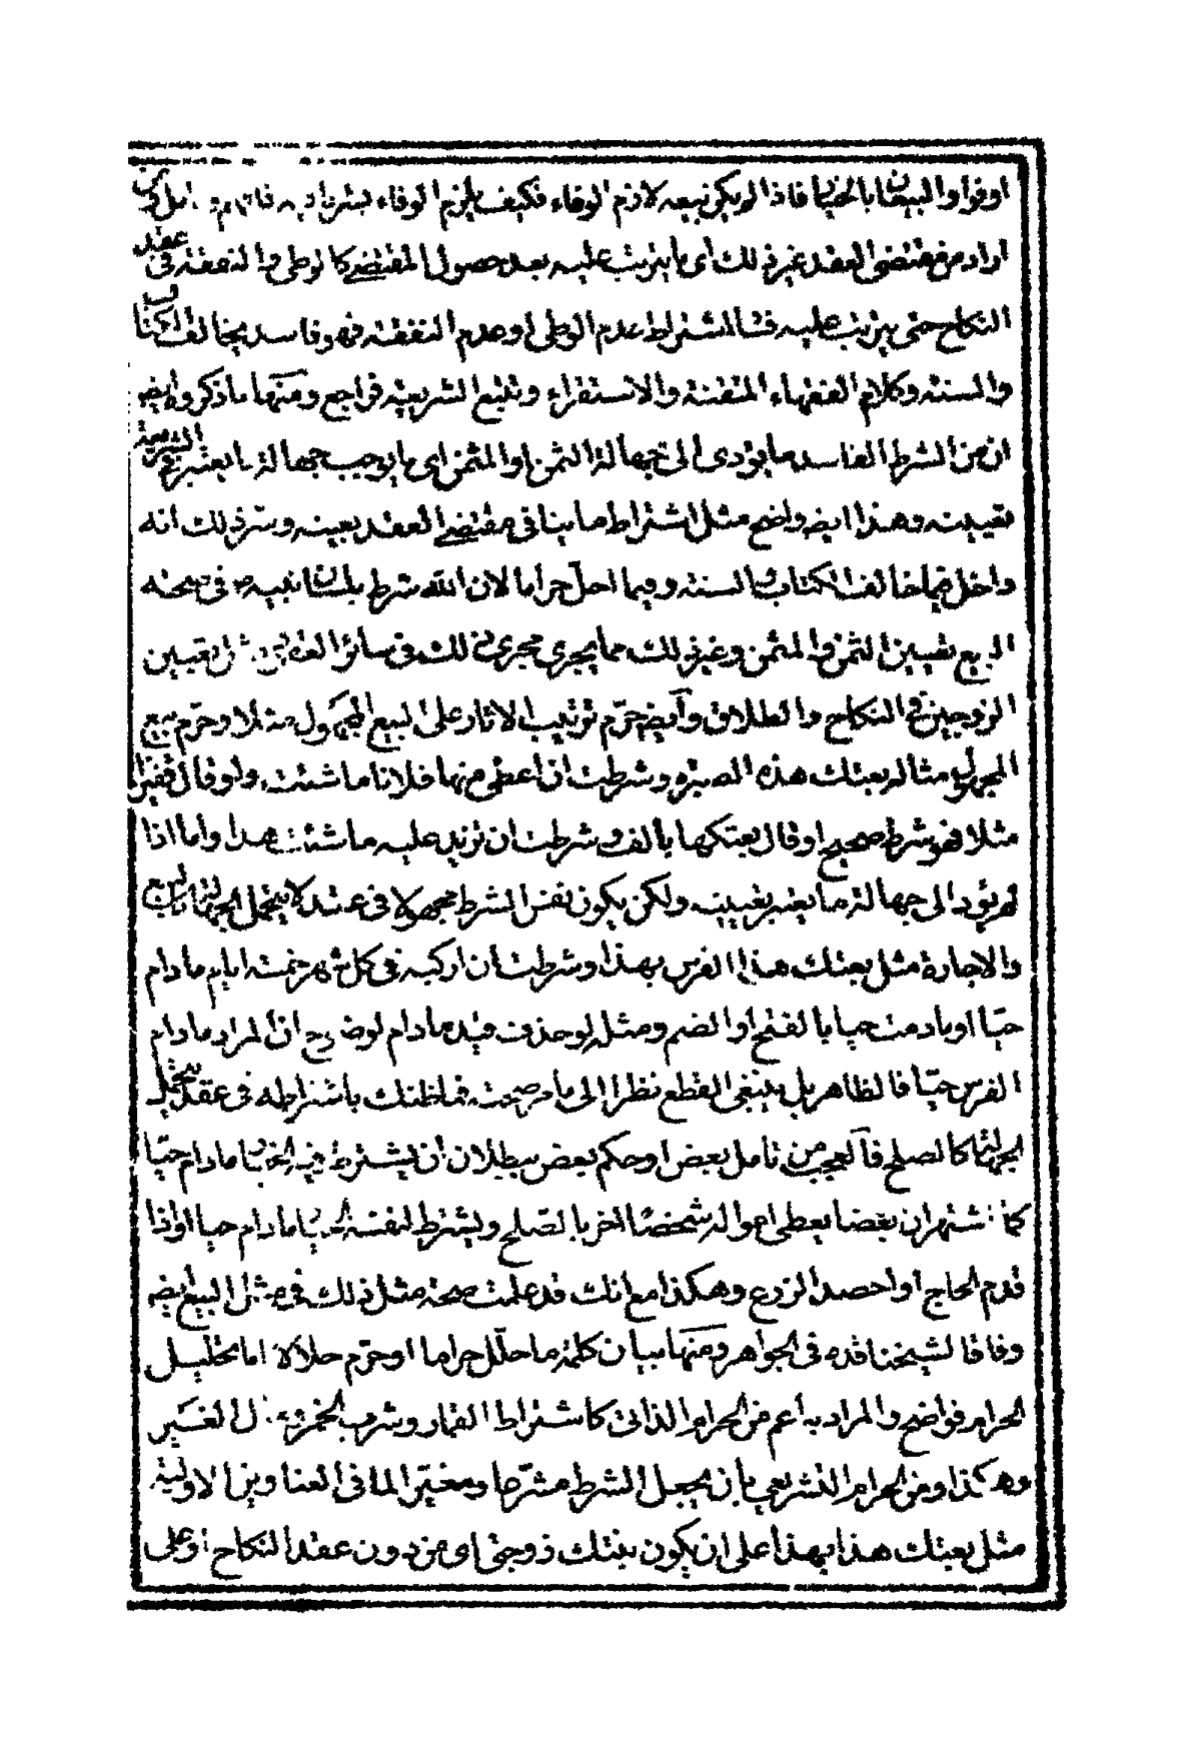 اوفوا والبيعان بالخيار فاذا لم يكن بيعه لازم الوفاء فكيف يلزم الوفاء بشرط
اراد من مقتضى العقد غير ذلك اى ما يترتب عليه بعد حصول المقتضى كالوطى والنفقة فى عقد
النكاح حتى يترتب عليه فساد اشتراط عدم الوطى او عدم النفقة فهو فاسد مخالف لكتاب
والسنة وكلام الفقهاء المتقنة والاستقراء وتتبع الشريعة فراجع ومنها ما ذكروه ايضا
ان من الشرط الفاسد ما يؤدى الى جهالة الثمن او المثمن اى ما يوجب جهالة ما يعتبر فى الشريعة
تعيينه وهذا ايضا واضح مثل اشتراط ما ينافى مقتضى العقد بعينه وسر ذلك انه
داخل فيما خالف الكتاب والسنة وفيما احل حراما لان الله شرط بلسان نبيه ص فى صحة
البيع تعيين الثمن والمثمن وغير ذلك مما يجرى مجرى ذلك فى سائر العقود مثل تعيين
الزوجين فى النكاح والطلاق وايضا حرم ترتيب الاثار على البيع المجهول مثلا وحرم بيع
المجهول مثاله بعتك هذه الصبرة وشرطت ان اعطى منها فلانا ما شئت ولو قال قفيزا
مثلا فهو شرط صحيح او قال بعتكها بالف وشرطت ان تزيد عليه ما شئت هذا واما اذا
لم يؤد الى جهالة ما يعتبر تعيينه ولكن يكون نفس الشرط مجهولا فى عقد لا يتحمل الجهالة كالبيع
والاجارة مثل بعتك هذا الفرس بهذا وشرطت ان اركبه فى كل شهر خمسة ايام ما دام
حيا او ما دمت حيا بالفتح او الضم ومثله لو حذفت قيد ما دام لوضوح ان المراد ما دام
الفرس حيا فالظاهر بل ينبغى القطع نظرا الى ما مر صحته فما ظنك باشتراطه فى عقد يتحمل
الجهالة كالصلح فالعجب من تامل بعض او حكم بعض ببطلان ان يشترط فيه الخيار ما دام حيا
كما اشتهر ان بعضا يعطى امواله شخصا اخر بالصلح ويشترط لنفسه الخيار ما دام حيا او اذا
قدم الحاج او احصد الزرع وهكذا مع انك قد علمت صحة مثل ذلك فى مثل البيع ايضا
وفاقا لشيخنا قده فى الجواهر ومنها بيان كلمة ما حلل حراما او حرم حلالا اما تحليل
الحرام فواضح والمراد به أعم من الحرام الذاتى كاشتراط القمار وشرب الخمر و ل الغير
وهكذا ومن الحرام التشريعى بان يجعل الشرط مشرعا ومغيرا لما فى العناوين الاولية
مثل بعتك هذا بهذا على ان يكون بنتك زوجتى اى من دون عقد النكاح او على